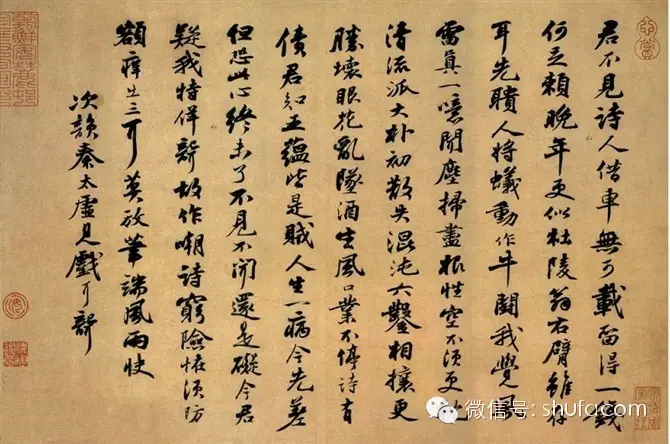 君不見詩人借車無可載留得一錢
何足賴晚年更似杜陵翁右臂雖存
耳先聵人將蟻動作牛鬭我覺風
雷真一噫聞塵掃盡根性空不須更枕
清流派大朴初散失混沌六鑿相攘更
勝壞眼花亂墜酒生風口業不停詩有
債君知五蘊皆是賊人生一病今先差
但恐此心終未了不見不聞還是礙今君
疑我特佯聾故作嘲詩窮險怪須防
額癢出三耳莫放筆端風雨快
次韻秦太虛見戲耳聾
微信号: shufa.com